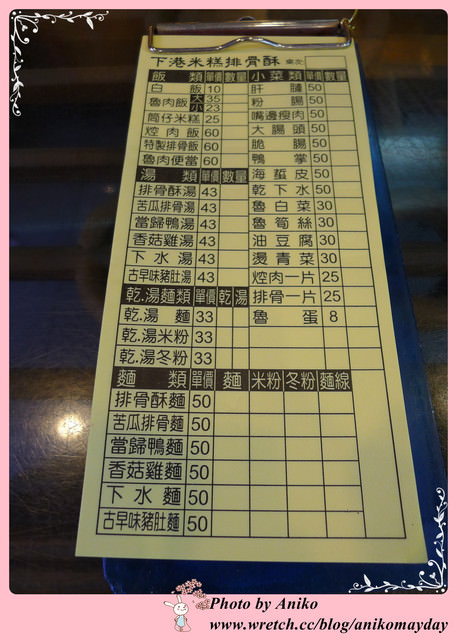 下港米糕排骨酥 桌次:
飯類 單價 數量 小菜類 單價 數量
白飯 10 肝腱 50
魯肉飯 大 35 小 23 粉腸 50
筒仔米糕 25 嘴邊瘦肉 50
焢肉飯 60 大腸頭 50
特製排骨飯 60 脆腸 50
魯肉便當 60 鴨掌 50
湯類 單價 數量 海蜇皮 50
排骨酥湯 43 乾下水 50
苦瓜排骨湯 43 魯白菜 30
當歸鴨湯 43 魯筍絲 30
香菇雞湯 43 油豆腐 30
下水湯 43 燙青菜 30
古早味豬肚湯 43 焢肉一片 25
乾.湯麵類 單價 乾 湯 排骨一片 25
乾.湯麵 33 魯蛋 8
乾.湯米粉 33
乾.湯冬粉 33
麵類 單價 麵 米粉 冬粉 麵線
排骨酥麵 50
苦瓜排骨麵 50
當歸鴨麵 50
香菇雞麵 50
下水麵 50
古早味豬肚麵 50
Photo by Aniko
www.wretch.cc/blog/anikomayday